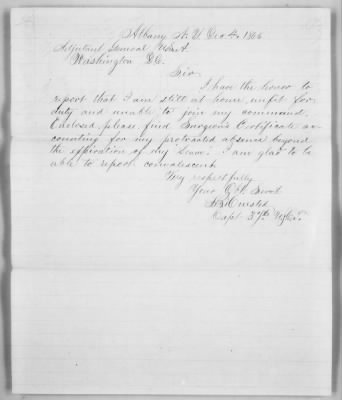 Albany N.Y. Dec 4, 1866
Adjutant General
Washington D.C.
Sir.
I have the honor to
report that I am still at home, unfit for
duty and unable to join my command.
Enclosed please find Surgeon's Certificate ac-
counting for my protracted absence beyond
the expiration of my "Leave". I am glad to be
able to report convalescent.
Very respectfully
Your Obt. Servt
Capt 37th